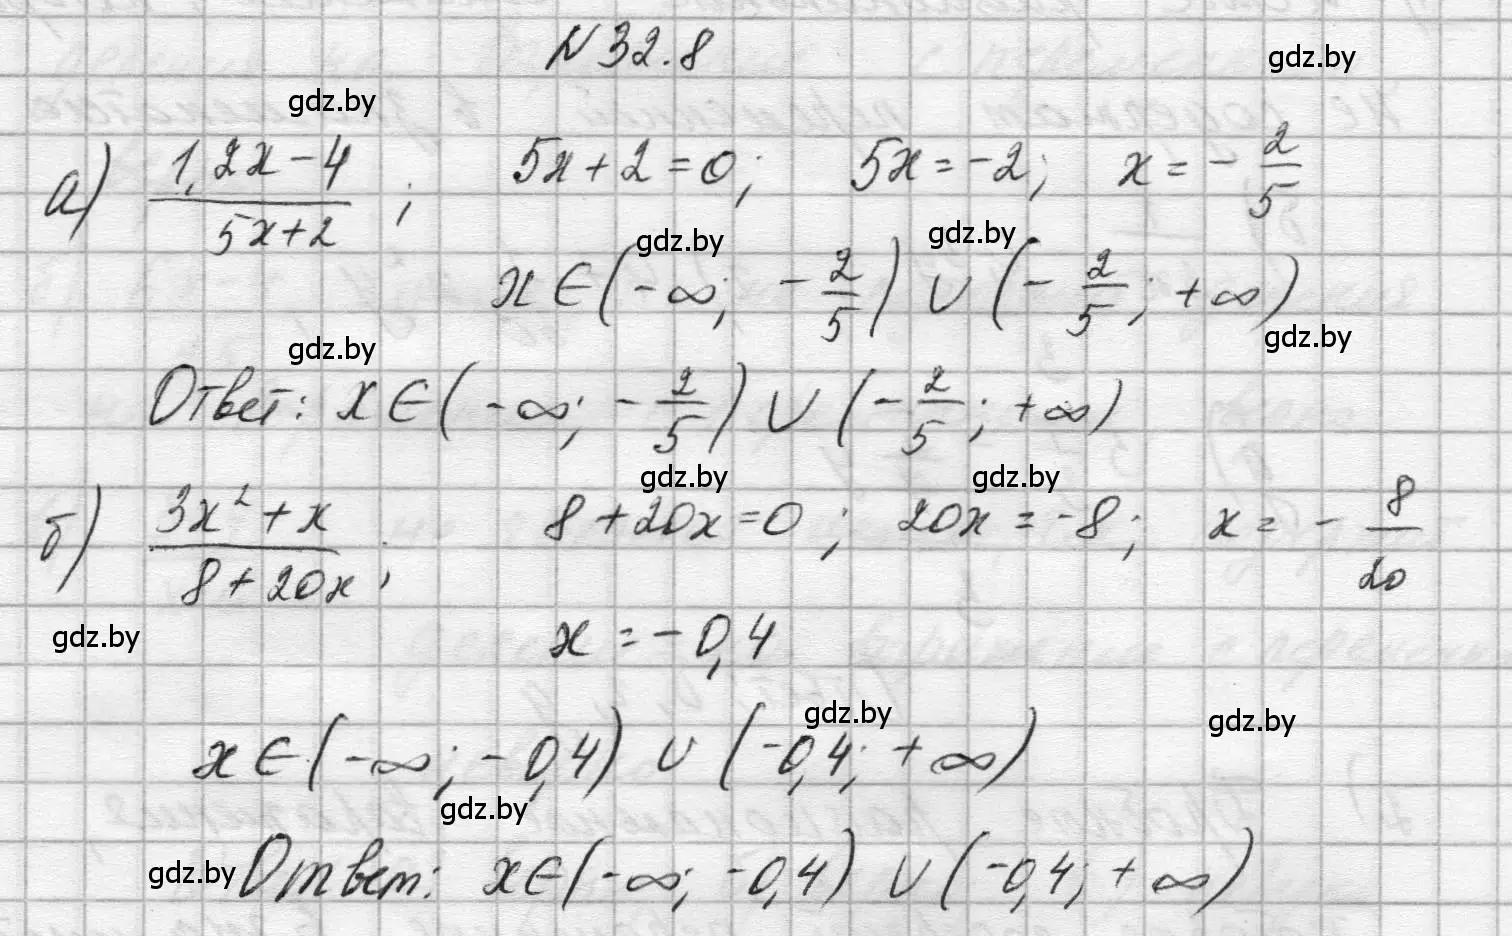 N 32.8
gdz.by
gdz.by
а) (1,2x-4)/(5x+2); 5x+2=0; 5x=-2; x=-2/5
gdz.by gdz.by
x∈(-∞; -2/5) ∪ (-2/5; +∞)
gdz.by gdz.by
Ответ: x∈(-∞; -2/5) ∪ (-2/5; +∞)
gdz.by gdz.by
б) (3x²+x)/(8+20x); 8+20x=0; 20x=-8; x=-8/20
gdz.by
x=-0,4
gdz.by gdz.by
x∈(-∞; -0,4) ∪ (-0,4; +∞)
gdz.by
gdz.by
Ответ: x∈(-∞; -0,4) ∪ (-0,4; +∞)